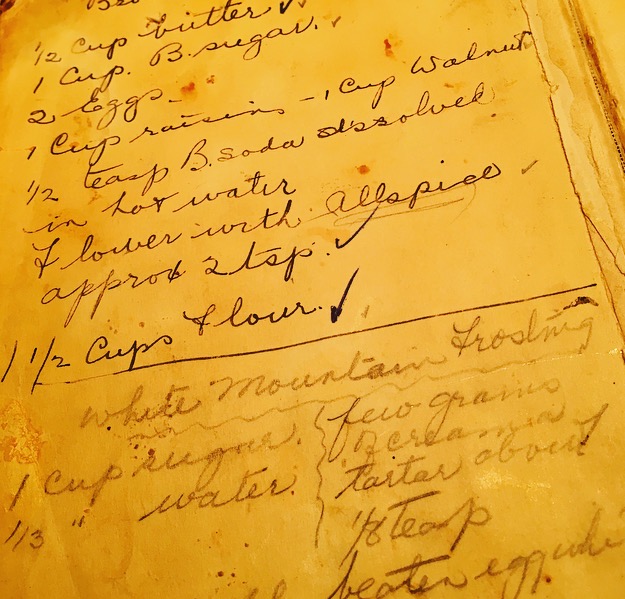 1/2 Cup butter
1 Cup. B. sugar.
2 Eggs
1 Cup raisins - 1 Cup Walnut
1/2 teasp B. soda dissolved
in hot water
Flower with Allspice
approx 2 tsp.
1 1/2 Cups Flour.
White Mountain Frosting
1 Cup sugar. few grains
of cream a
1/3 " water. tartar about
1/8 teasp
beaten egg whi